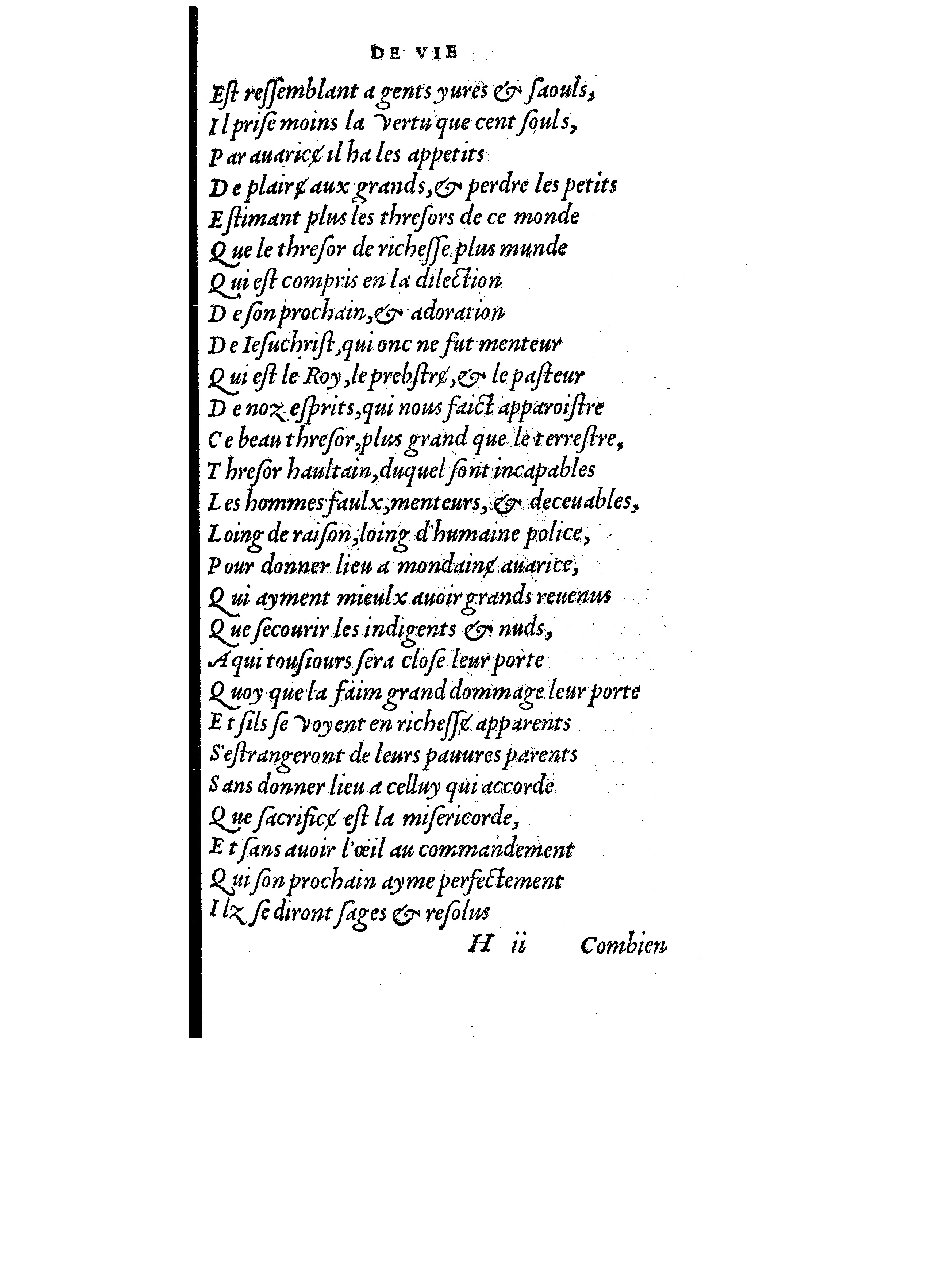 DE VIE
Eſt reſſemblant a gents yures & ſaouls,
Il priſe moins la vertu que cent ſouls,
Par auaricɇ il ha les appetits
De plairɇ aux grands, & perdre les petits
Eſtimant plus les threſors de ce monde
Que le threſor de richeſſe plus munde
Qui eſt compris en la dilection
De ſon prochain, & adoration
De Ieſuchriſt, qui onc ne fut menteur
Qui eſt le Roy, le prebſtrɇ, & le paſteur
De noz eſprits, qui nous faict apparoiſtre
Ce beau threſor, plus grand que le terreſtre,
Threſor haultain, duquel ſont incapables
Les hommes faulx, menteurs, & deceuables,
Loing de raiſon, loing d'humaine police,
Pour donner lieu a mondainɇ auarice,
Qui ayment mieulx auoir grands reuenus
Que ſecourir les indigents & nuds,
A qui touſiours ſera cloſe leur porte
Quoy que la faim grand dommage leur porte
Et ſils ſe voyent en richeſſɇ apparents
S'eſtrangeront de leurs pauures parents
Sans donner lieu a celluy qui accorde
Que ſacrificɇ eſt la miſericorde,
Et ſans auoir l'œil au commandement
Qui ſon prochain ayme perfectement
Ilz ſe diront ſages & reſolus
H ii Combien